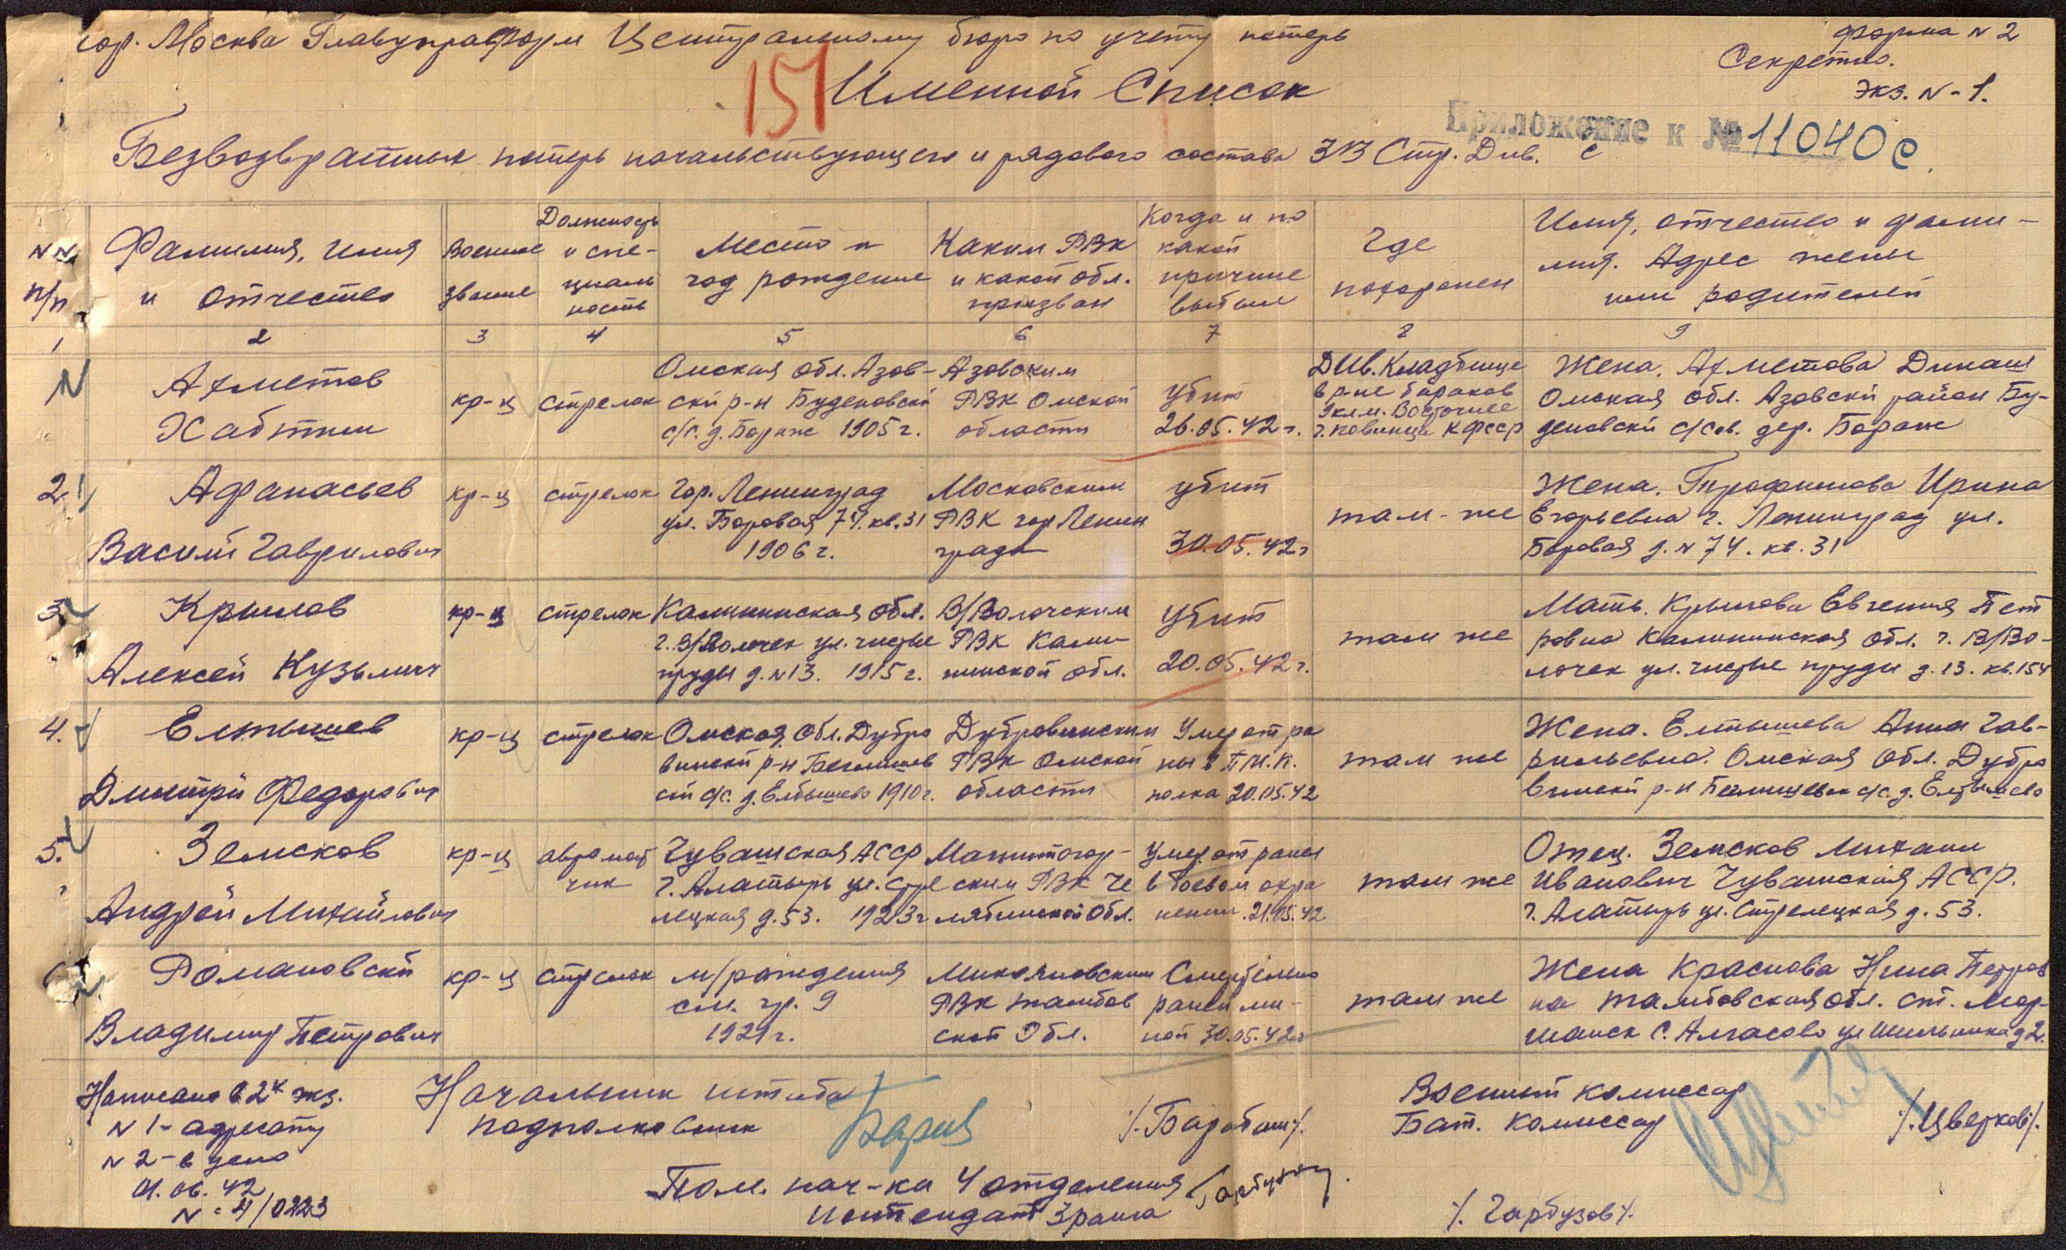 гор. Москва Главупраформ Центральному бюро по учету потерь
форма N 2
Секретно.
экз. N - 1.
151
Именной Список
Приложение к № 11040с
Безвозвратных потерь начальствующего и рядового состава 313 Стр. Див.
NN п/п
Фамилия, имя и отчество
Военное звание
Должность и специальность
Место и год рождения
Каким РВК и какой обл. призван
Когда и по какой причине выбыл
Где похоронен
Имя, отчество и фамилия. Адрес жены или родителей
1 2 3 4 5 6 7 8 9
1
Ахметов
кр-ц
стрелок
Омская обл. Азов-
ский р-н Буденовский
с/с. д. 1905 г.
Азовским
РВК Омской
области
убит
26.05.42 г.
Див. Кладбище
в р-не бараков
Восточнее
г. Повинца КФССР
Жена. Ахметова
Омская обл. Азовский район Бу-
деновский с/сов. дер.
2.
Афанасьев
Василий Гаврилович
кр-ц
стрелок
гор. Ленинград
ул. Боровая 74. кв. 31
1906 г.
Московским
РВК гор Ленин
града
убит
30.05.42 г
там-же
Жена. Трофимова Ирина
Егорьевна г. Ленинград ул.
Боровая д. N 74. кв. 31
3.
Крылов
Алексей Кузьмич
кр-ц
стрелок
Калининская обл.
г. В/Волочек ул. чистые
пруды д. N 13. 1915 г.
В/Волочским
РВК Кали-
нинской обл.
убит
20.05.42 г.
там же
Мать. Крылова Евгения Пет
ровна Калининская обл. г. В/Во-
лочек ул. чистые пруды д. 13. кв. 154
4.
Елтышев
Дмитрий Федорович
кр-ц
стрелок
Омская, обл. Дубро
винский р-н
с/с. д. 1910 г.
Дубровинским
РВК Омской
области
Умер от ра
ны в
полка 20.05.42
там же
Жена. Елтышева Анна Гав-
рильевна. Омская обл. Дубро
винский р-н с/с. д. Елтышево
5.
Земсков
Андрей Михайлович
кр-ц
автомат
чик
Чувашская АССР
г. Алатырь ул. Стре
лецкая д. 53. 1923 г
Магнитогор-
ским РВК Че
лябинской обл.
умер от раны
в боевом охра
нении. 21.05.42
там же
Отец. Земсков Михаил
Иванович Чувашская АССР.
г. Алатырь ул. Стрелецкая д. 53.
6
Романовский
Владимир Петрович
кр-ц
стрелок
м/рождения
см. гр. 9
1921 г.
Микояновским
РВК Тамбов
ской Обл.
Смертельно
ранен ми-
ной 30.05.42 г
там же
Жена Краснова Нина Петров
на Тамбовская обл. ст. Мор-
шанск с. Алгасово ул д 2.
Написано в 2х экз.
N 1 - адресату
N 2 - в дело
01.06.42
N - 4/0223
Начальник штаба
подполковник
/. Барабаш/.
Военный комиссар
Бат. комиссар
/. Цветков/.
Пом. нач-ка 4 отделения
интендант 3 ранга
/. Гарбузов/.